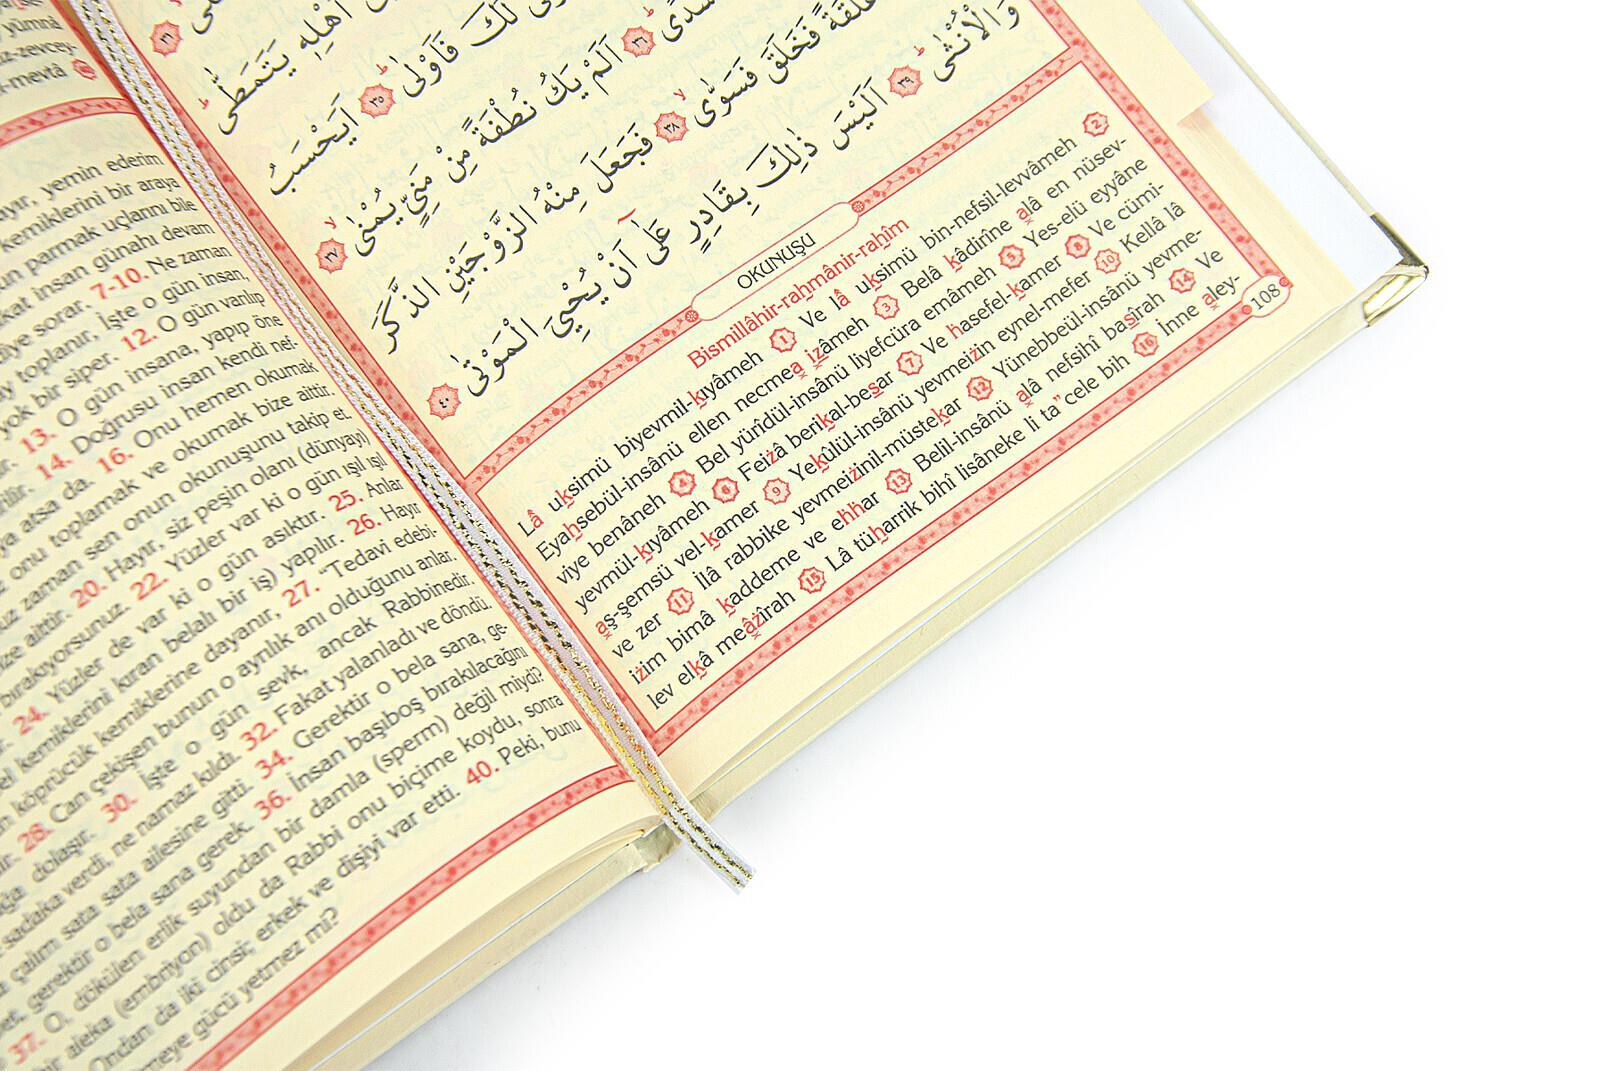 yümnâ
iz-zevcey-
l-mevtâ
ayır, yemin ederim
kemiklerini bir araya
un parmak uçlarını bile
kat insan günahı devam
diye sorar. 7-10. Ne zaman
ay toplanır, İşte o gün insan,
yok bir siper. 12. O gün varılıp
r. 13. O gün insana, yapıp öne
rilir. 14. Doğrusu insan kendi nef-
ya atsa da. 16. Onu hemen okumak
z onu toplamak ve okumak bize aittir.
uz zaman sen onun okunuşunu takip et.
ize aittir. 20. Hayır, siz peşin olanı (dünyayı)
bırakıyorsunuz. 22. Yüzler var ki o gün ışıl ışıl
r. 24. Yüzler de var ki o gün asıktır. 25. Anlar
el kemiklerini kıran belalı bir iş) yapılır. 26. Hayır
n köprücük kemiklerine dayanır, 27. "Tedavi edebi-
ir. 28. Can çekişen bunun o ayrılık anı olduğunu anlar.
ğa dolaşır. 30. İşte o gün sevk, ancak Rabbinedir.
sadaka verdi, ne namaz kıldı. 32. Fakat yalanladı ve döndü.
çalım sata sata ailesine gitti. 34. Gerektir o bela sana, ge-
et, gerektir o bela sana gerek. 36. İnsan başıboş bırakılacağını
37. O, dökülen erlik suyundan bir damla (sperm) değil miydi?
bir aleka (embriyon) oldu da Rabbi onu biçime koydu, sonra
Ondan da iki cinsi; erkek ve dişiyi var etti. 40. Peki, bunu
meye gücü yetmez mi?
اَهْلِه۪ يَتَمَطّٰى
لَكَ فَاَوْلٰى ﴿٣٥﴾ اَيَحْسَبُ
سُدًى ﴿٣٦﴾ اَلَمْ يَكُ نُطْفَةً مِنْ مَنِيٍّ يُمْنٰى ﴿٣٧﴾
عَلَقَةً فَخَلَقَ فَسَوّٰى ﴿٣٨﴾ فَجَعَلَ مِنْهُ الزَّوْجَيْنِ الذَّكَرَ
وَالْاُنْثٰى ﴿٣٩﴾ اَلَيْسَ ذٰلِكَ بِقَادِرٍ عَلٰٓى اَنْ يُحْيِيَ الْمَوْتٰى ﴿٤٠﴾
OKUNUŞU
Bismillâhir-rahmânir-rahîm
Lâ uksimü biyevmil-kıyâmeh 1 Ve lâ uksimü bin-nefsil-levvâmeh 2
Eyahsebül-insânü ellen necmea izâmeh 3 Belâ kâdirîne alâ en nüsev-
viye benâneh 4 Bel yürîdül-insânü liyefcüra emâmeh 5 Yes-elü eyyâne
yevmül-kıyâmeh 6 Feizâ berikal-besar 7 Ve hasefel-kamer 8 Ve cümi-
aş-şemsü vel-kamer 9 Yekûlül-insânü yevmeizin eynel-mefer 10 Kellâ lâ
ve zer 11 İlâ rabbike yevmeizinil-müstekar 12 Yünebbeül-insânü yevme-
izim bimâ kaddeme ve ehhar 13 Belil-insânü alâ nefsihî basîrah 14 Ve
lev elkâ meâzîrah 15 Lâ tüharrik bihî lisâneke li ta"cele bih 16 İnne aley-
108